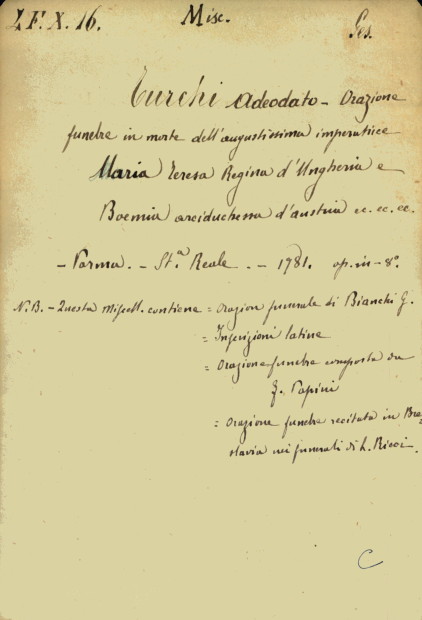 Z.F.X. 16. Misc. Ges.
Turchi Adeodato - Orazione
funebre in morte dell'augustissima imperatrice
Maria Teresa Regina d'Ungheria e
Boemia arciduchessa d'Austria ec. ec. ec.
- Parma. - St.ª Reale. - 1781. op. in - 8º.
N.B. - Questa Miscell. contiene = orazion funerale di Bianchi G.
= Inscrizioni latine
= Orazione funebre composta da
F. Papini
= Orazione funebre recitata in Bra-
slavia nei funerali di L. Ricci.
C